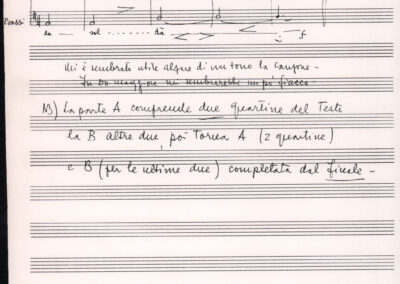 Bassi
da sol da f
Mi è sembrato utile alzare di un tono la canzone -
In Do maggiore mi sembrerebbe un pò fiacca
N) La parte A comprende due quartine del Testo
la B altre due, poi Torna A (2 quartine)
e B (per le ultime due) completata dal finale -